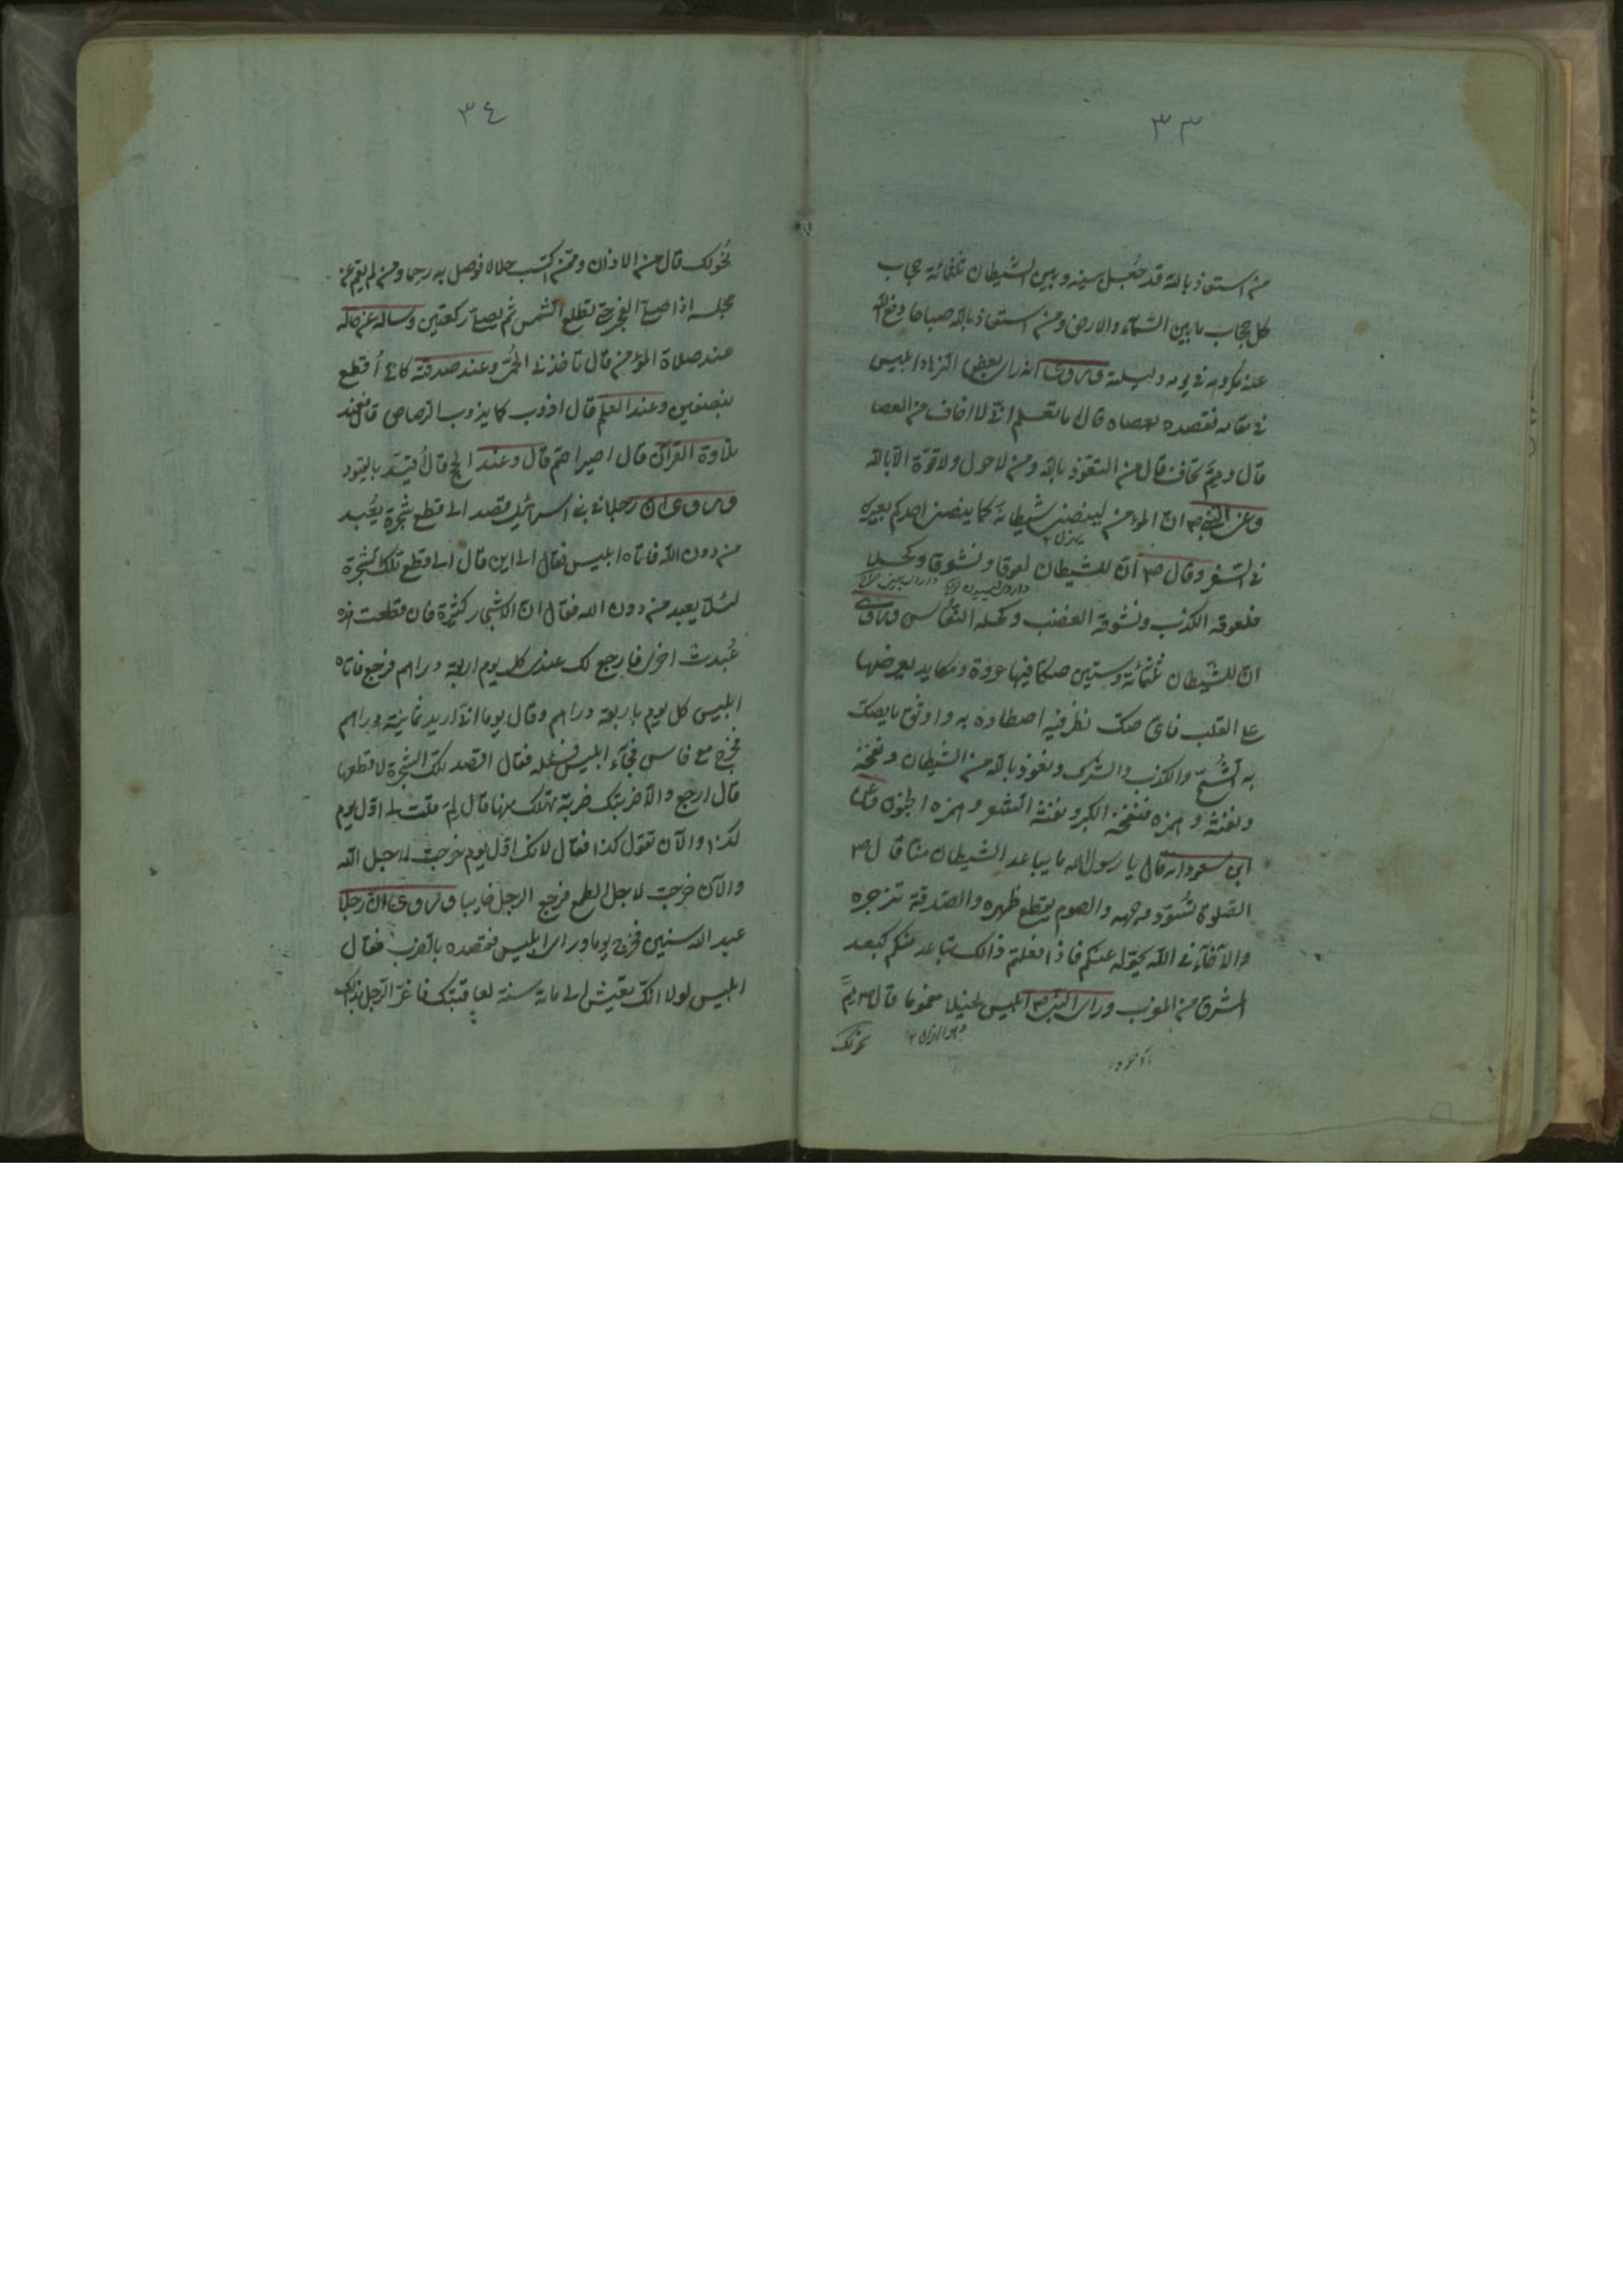 ٣٣
من استعاذ بالله قد جعل بينه وبين الشيطان ثلثمائة حجاب
كل حجاب ما بين السّمآء والارض ومن استعاذ بالله صباحا دفع الله
عنه مكروه في يومه وليلته وروى انه راى بعض الزهاد ابليس
في مقامه فقصده بعصاه قال ما تعلم انّى لا اخاف من العصا
قال وممَّ تخاف قال من التعوّذ بالله ومن لا حول ولا قوّة الّا بالله
وعن النبى ص انّ المؤمن لينضى شيطانه كما ينضى احدكم بعيره
في السّفر وقال ص انّ للشيطان لعوقا ونشوقا وكحلا
فلعوقه الكذب ونشوقه الغضب وكحله النعاس وروى
انّ للشّيطان ثلثمائة وستين صكا فيها عودة ومكايد يعرضها
على القلب فاىّ صك نظر فيه اصطاده به واوثق ما يصك
به الشُّحّ والكذب والشرك ونعوذ بالله من الشيطان ونفخه
ونفثه وهمزه فنفخه الكبر ونفثه الشعر وهمزه الجنون وعن
ابن مسعود انه قال يا رسول الله ما يباعد الشيطان منا قال ص
الصّلوة تُسوّد وجهه والصوم يقطع ظهره والصّدقة تزجره
والآخآء في الله يحوّله عنكم فاذا فعلتم ذالك تباعد عنكم كبعد
المشرق من المغرب وراى النبى ص ابليس نحيلا مغموما قال ص ممَّ
نحولك
٣٤
نحُولك قال من الاذان وممّن اكتسب حلالا فوصل به رحما ومن لم يقم عن
مجلسه اذا صلّى الفجر حتى تطلع الشمس ثم يصلّى ركعتين وساله عن حاله
عند صلاة المؤمن قال تاخذنى الحُمّى وعند صدقته كانّى اُقطع
بنصفين وعند العلم قال اذوب كما يذوب الرّصاص قال فعند
تلاوة القرآن قال اصير اصمّ قال وعند الحج قال اُقيّد بالقيود
وروى انّ رجلا في بنى اسرائيل قصد الى قطع شجرة يُعبد
من دون الله فاتاه ابليس فقال الى اين قال الى قطع تلك الشجرة
لئلّا يعبد من دون الله فقال انّ الاشجار كثيرة فان قطعت هذه
عُبدت اخرى فارجع لك عندى كل يوم اربعة دراهم فرجع فاتاه
ابليس كل يوم باربعة دراهم وقال يوما انّى اريد ثمانية دراهم
فخرج مع فاس فجآء ابليس فقال اقصد تلك الشجرة لاقطعها
قال ارجع والّا ضربتك ضربة تهلك بها قال لِمَ قلت لى اوّل يوم
كذا والآن تقول كذا فقال لانّك اوّل يوم خرجت لاجل الله
والآن خرجت لاجل الطمع فرجع الرجل خايبا وروى انّ رجلا
عبد الله سنين فخرج يوما وراى ابليس فقصده بالضرب فقال
ابليس لولا انّك تعيش الى مائة سنة لعاقبتك فاغترّ الرّجل بذلك